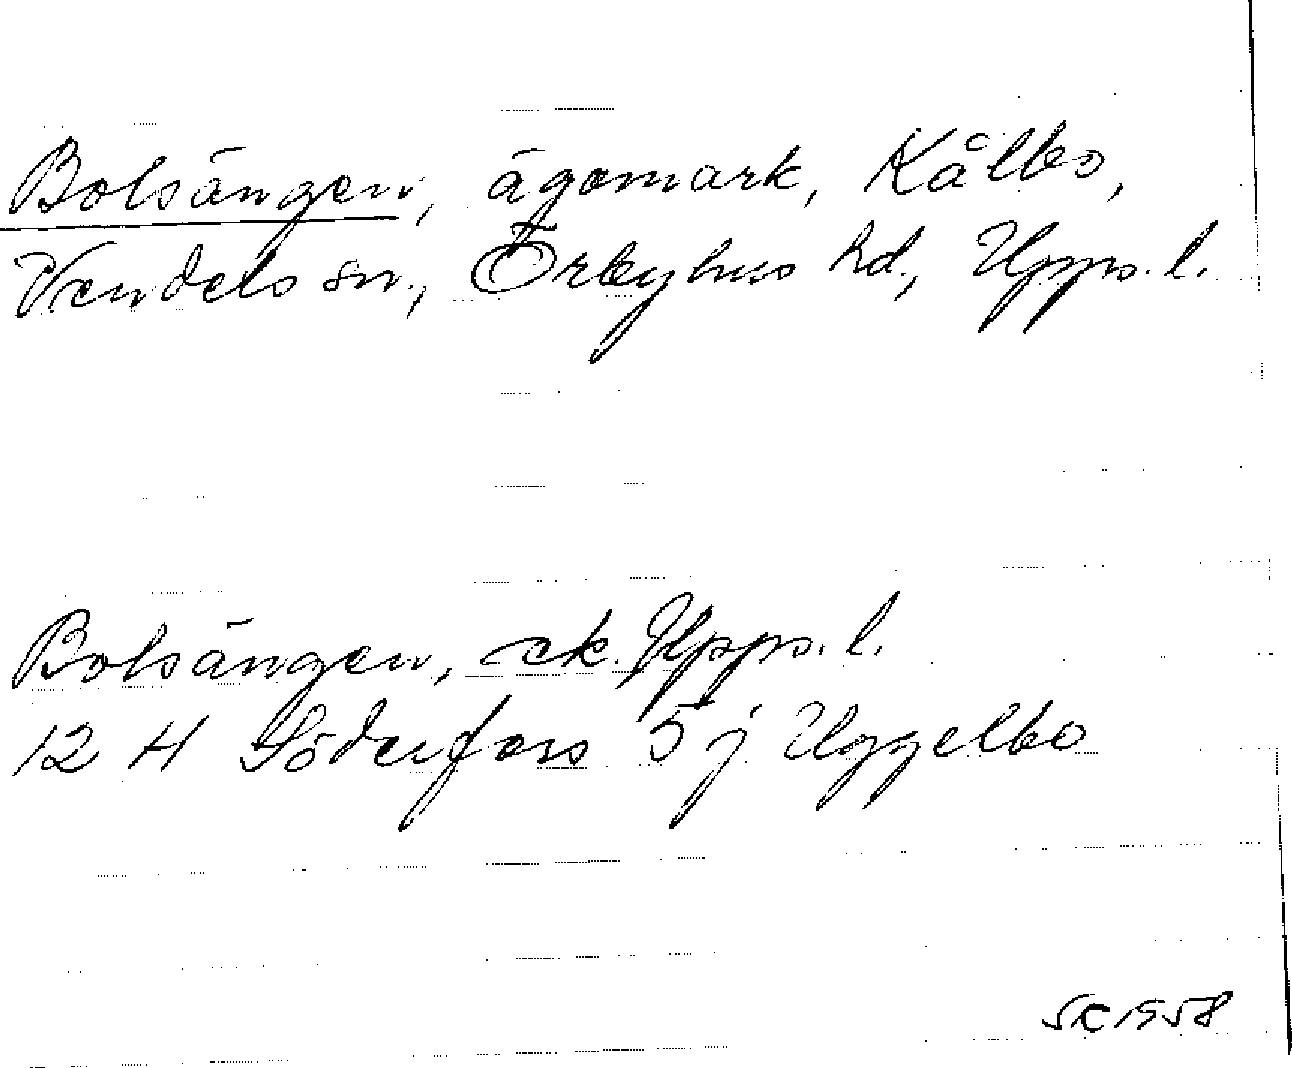 Bolsängen, ägomark, Kålbo,
Vendels sn., Örbyhus hd., Upps. l.
Bolsängen, ek. Upps. l.
12 H Söderfors 5 j Uggelbo
SC 1958